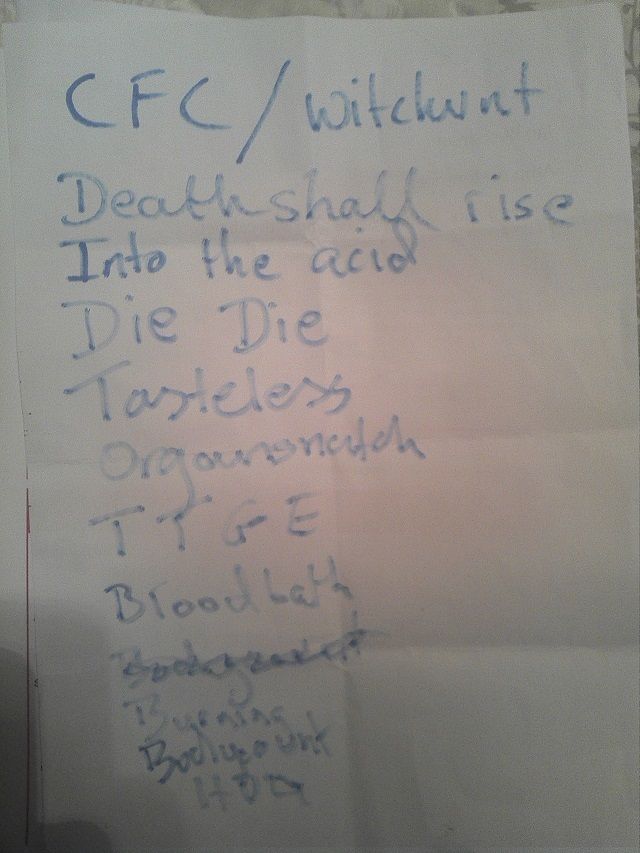 CFC / Witchunt
Death shall rise
Into the acid
Die Die
Tasteless
Organsnatch
T T G E
Bloodbath
Burning
Bodycount